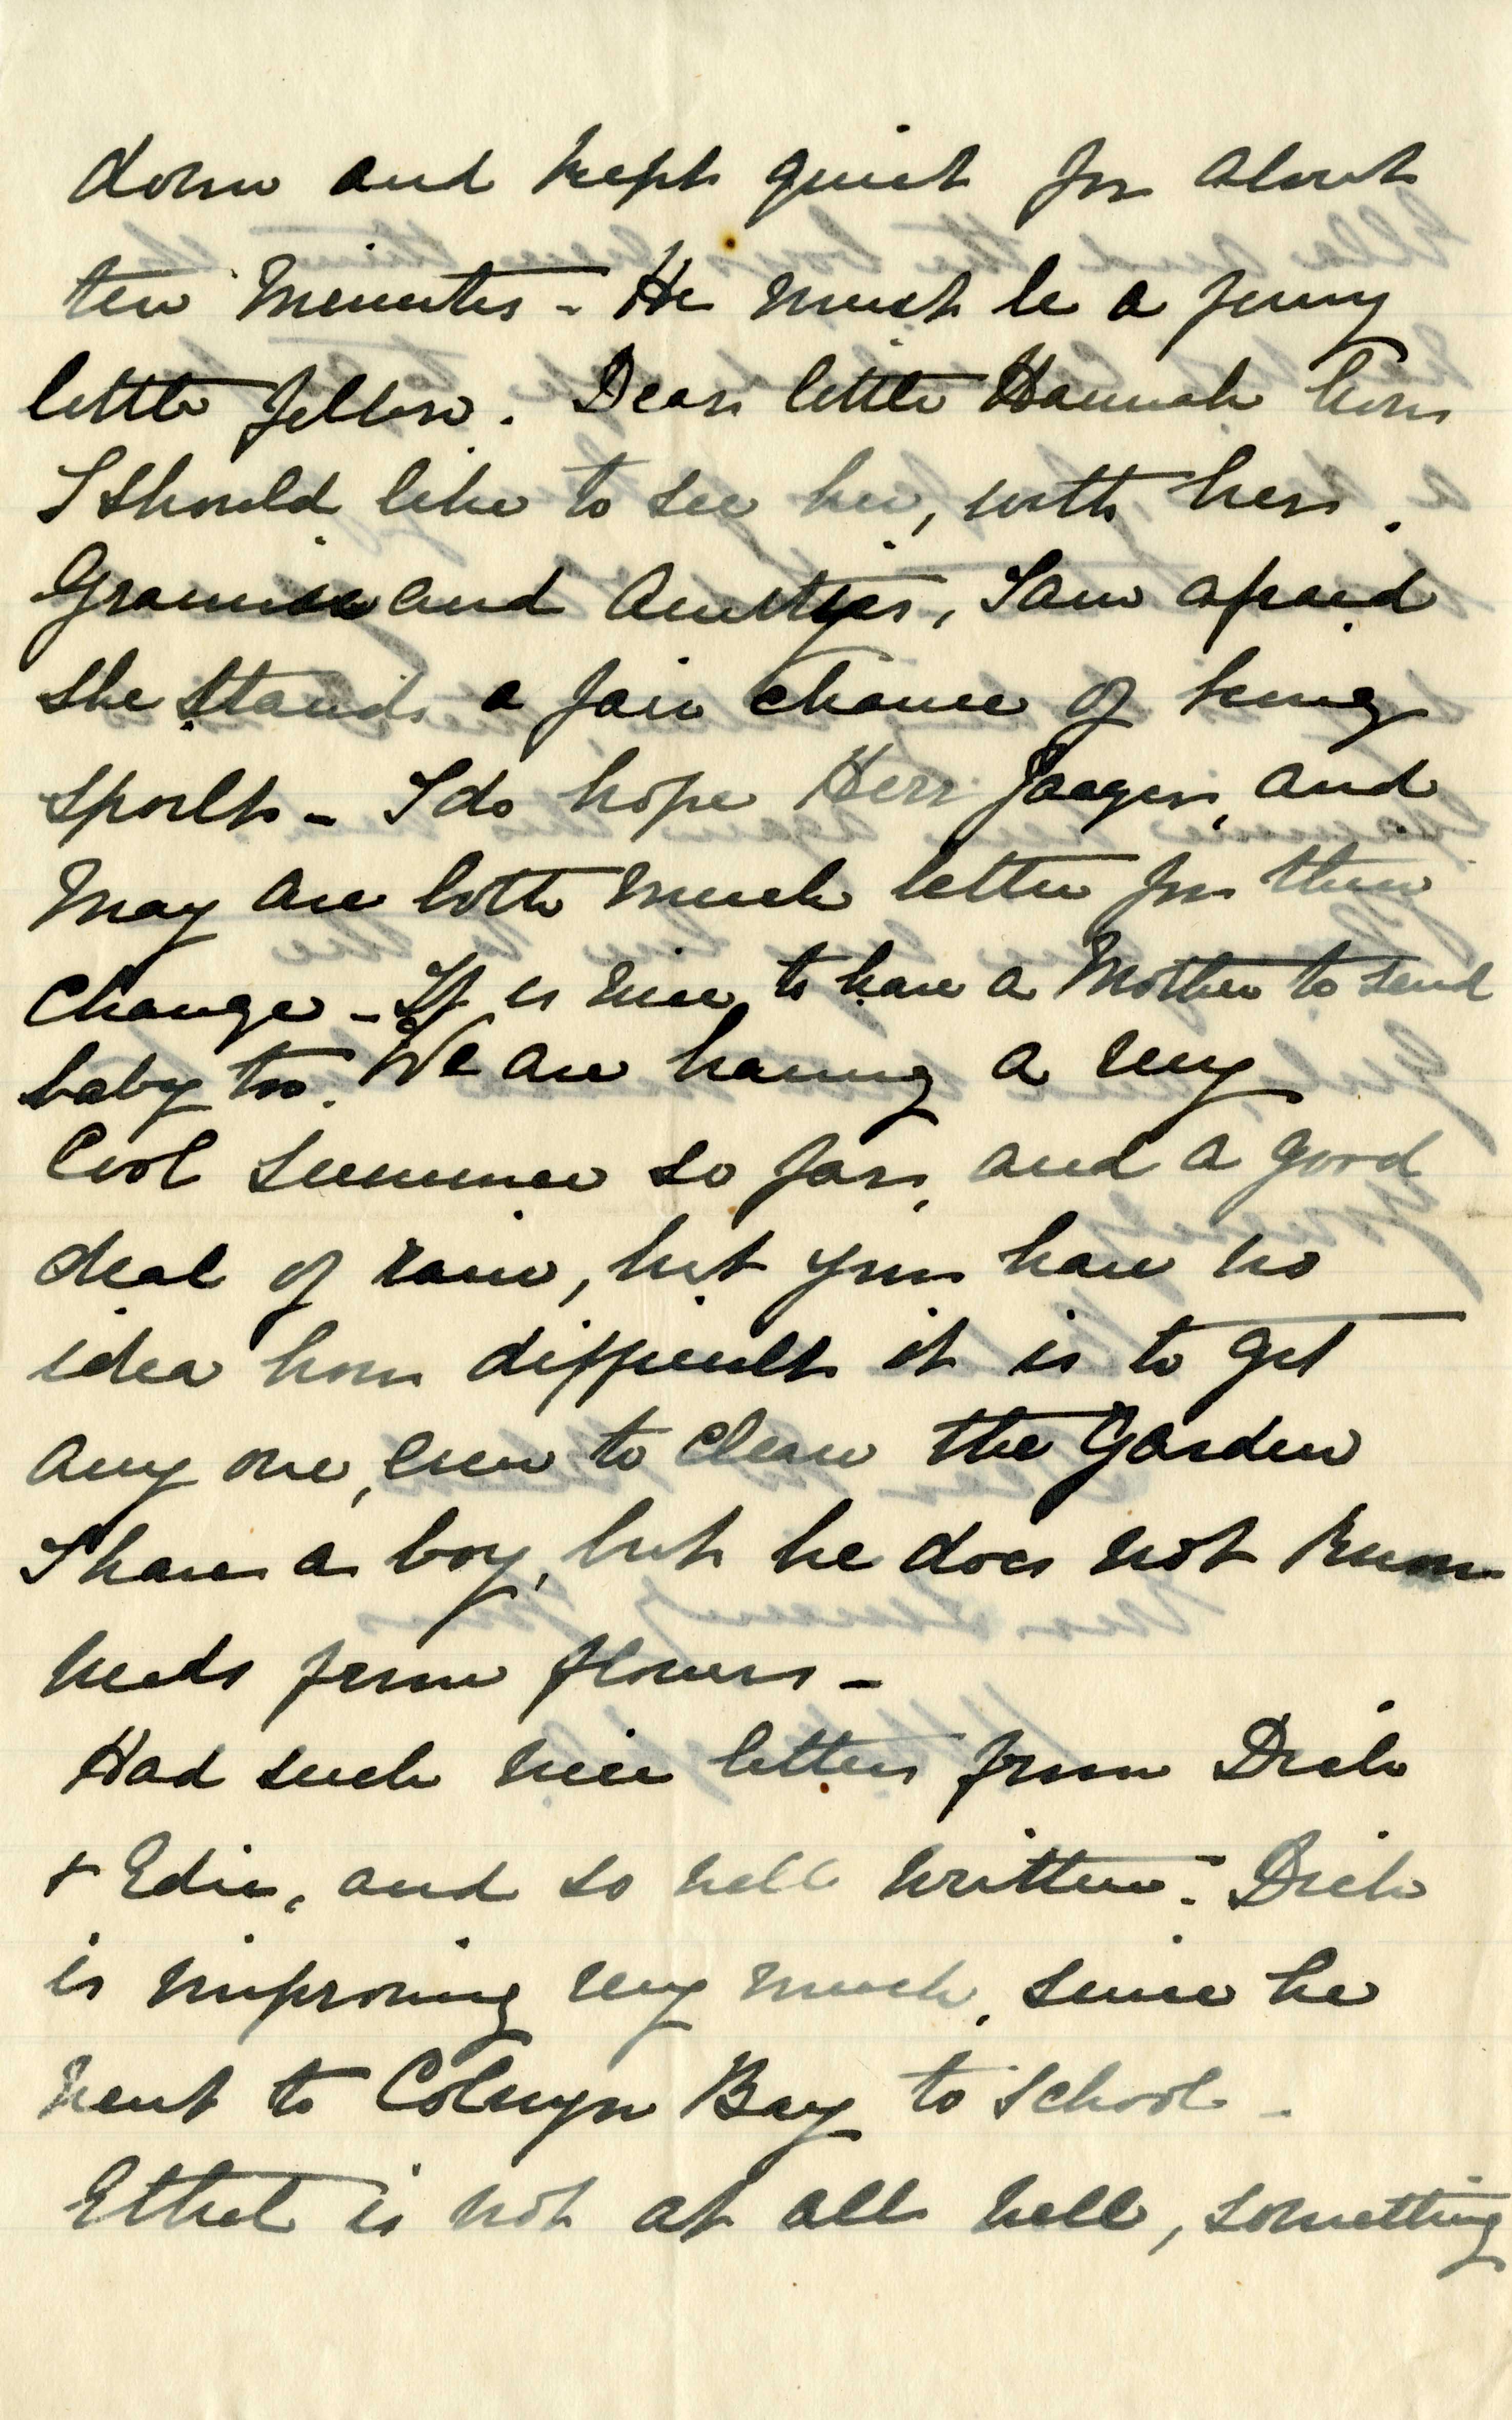 down and kept quiet for about
ten minutes - He must be a funny
little fellow. Dear little Hannah how
I should like to see her, with her.
Grannie and Aunties, I am afraid
she stands a fair chance of being
spoilt - I do hope Herr Jaeger, and
May are both much better for their
change - It is nice, to have a Mother to send
baby too. We are having a very
Cool summer so far, and a good
deal of rain, but you have no
idea how difficult it is to get
any one, even to clean the Garden
I have a boy, but he does not know
weeds from flowers -
Had such nice letters from Dick
& Edie, and so well written. Dick
is improving very much, since he
went to Colwyn Bay to school -
Ethel is not at all well, something